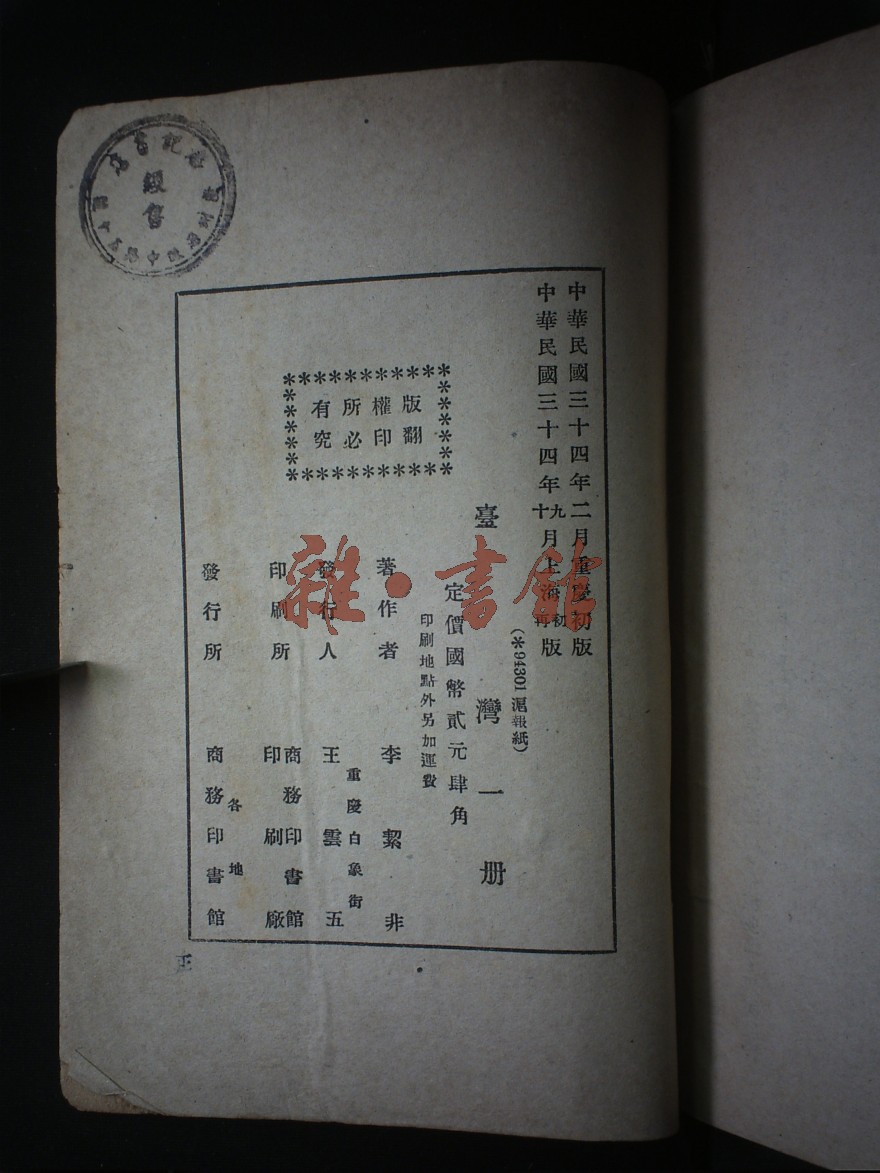 中華民國三十四年二月重慶初版
中華民國三十四年十九月上海再初版
(＊94301 滬報紙)
臺灣一册
定價國幣貳元肆角
印刷地點外另加運費
版權所有
翻印必究
著作者 李絜非
重慶白象街
發行人 王雲五
印刷所 商務印書館
印刷廠
各地
發行所 商務印書館
雜·書館